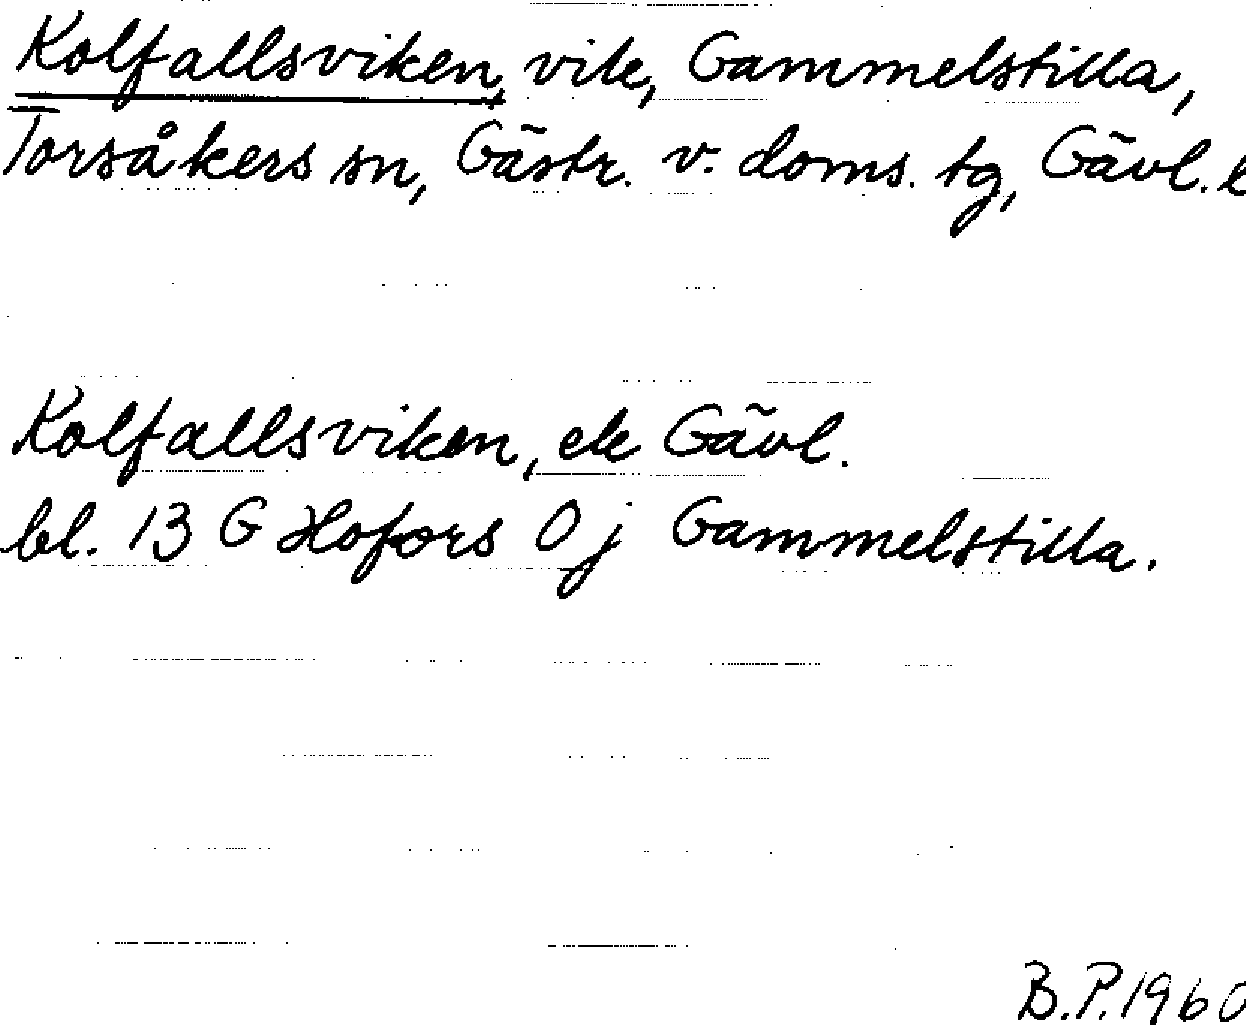 Kolfallsviken, vik, Gammelstilla,
Torsåkers sn, Gästr. v. doms. tg, Gävl. l
Kolfallsviken, ek Gävl.
bl. 13 G Hofors 0 j Gammelstilla.
B.P. 1960